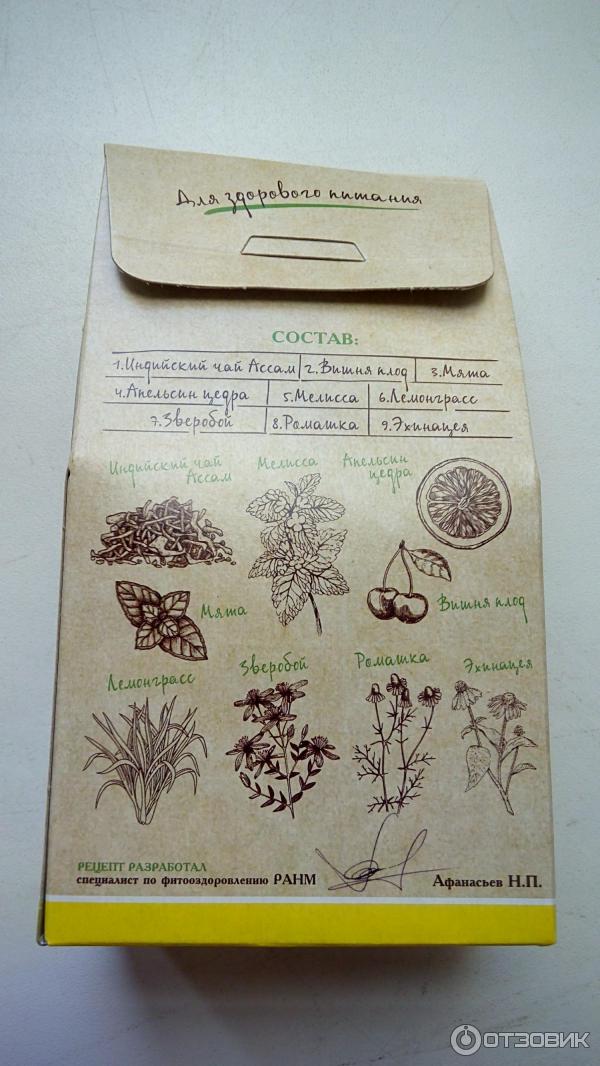 Для здорового питания
СОСТАВ:
1.Индийский чай Ассам 2.Вишня плод 3.Мята
4.Апельсин цедра 5.Мелисса 6.Лемонграсс
7.Зверобой 8.Ромашка 9.Эхинацея
Индийский чай
Ассам
Мелисса
Апельсин
цедра
Мята
Вишня плод
Лемонграсс
Зверобой
Ромашка
Эхинацея
РЕЦЕПТ РАЗРАБОТАЛ
специалист по фитооздоровлению РАНМ
Афанасьев Н.П.
ОТЗОВИК